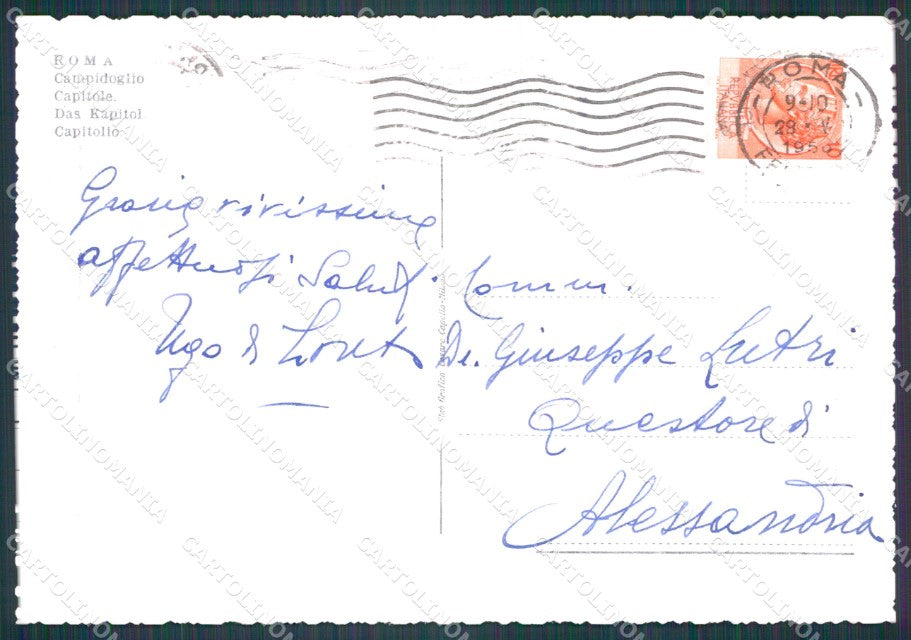 ROMA
Campidoglio
Capitole.
Das Kapitol
Capitolio
ROMA
9-10
1956
REPVBBLICA
ITALIANA
Grazie vivissime
affettuosi Saluti
Ugo di
Comm.
Dr. Giuseppe Lutri
Questore di
Alessandria
CARTOLINOMANIA